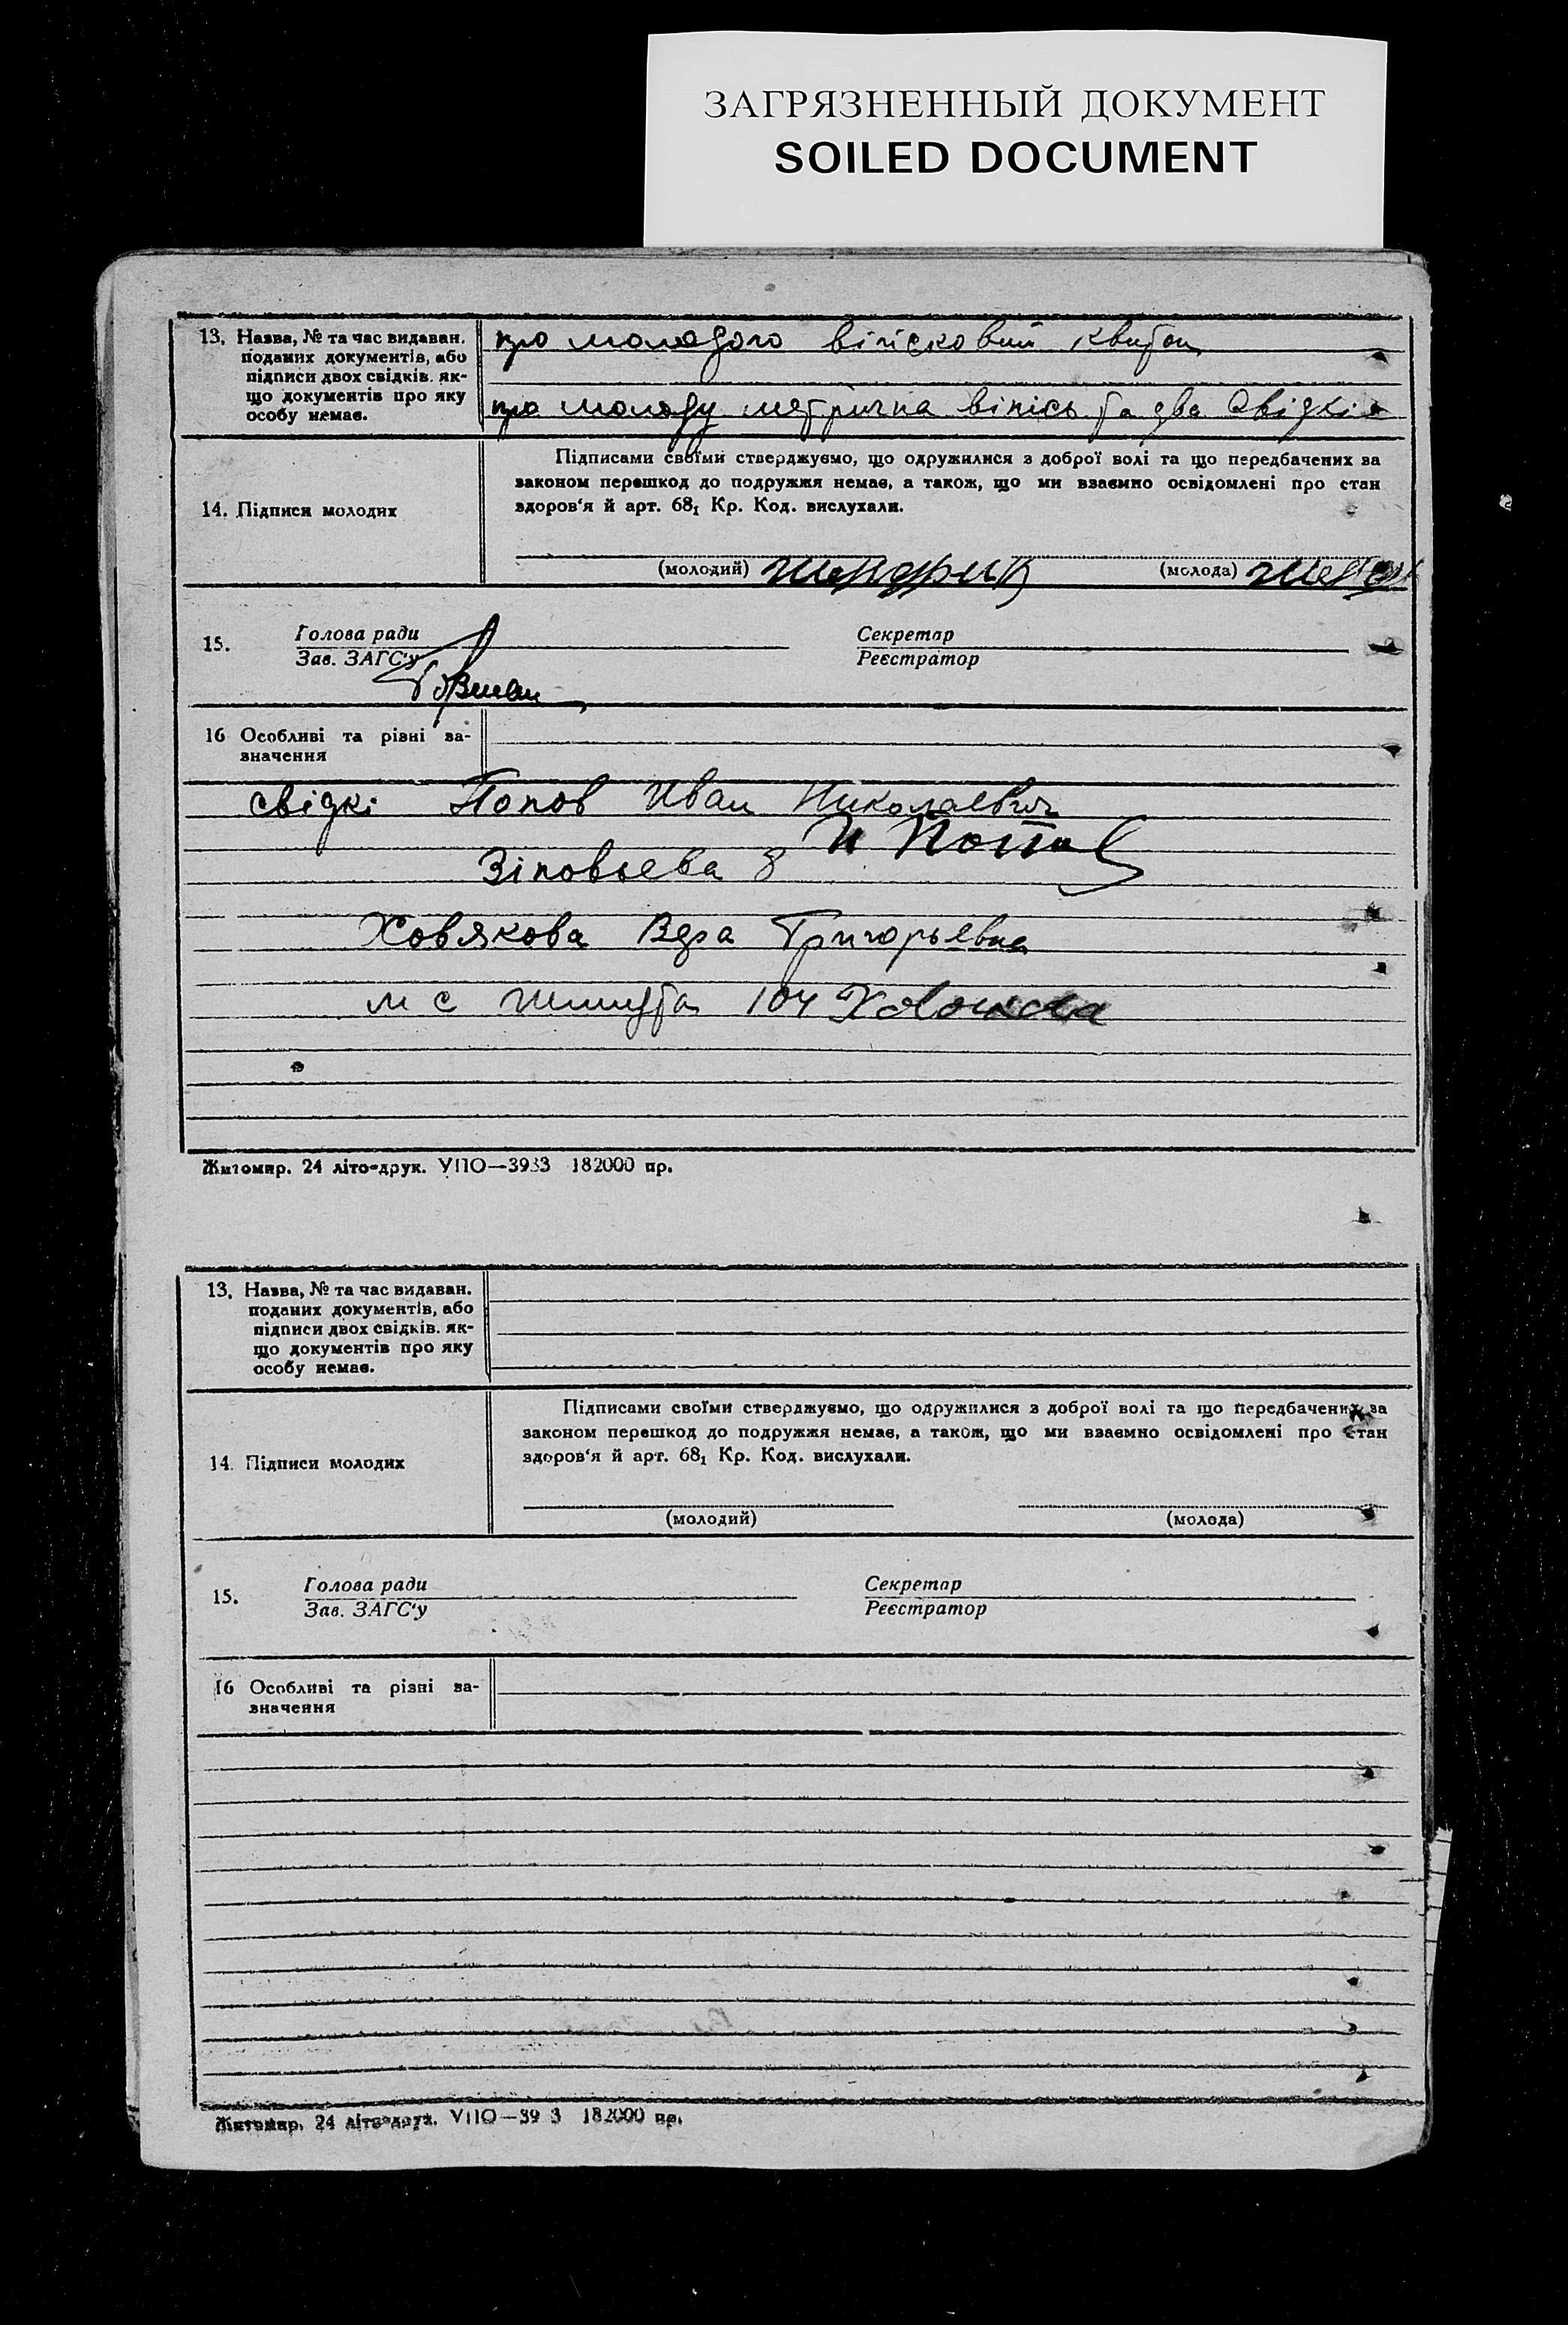 ЗАГРЯЗНЕННЫЙ ДОКУМЕНТ
SOILED DOCUMENT
13. Назва, № та час видаван. поданих документів, або підписи двох свідків. якщо документів про яку особу немає.
про молодого війсковий квиток
про молоду метрична випісь та два свідкі
14. Підписи молодих
Підписами своїми стверджуємо, що одружилися з доброї волі та що передбачених за
законом перешкод до подружжя немає, а також, що ми взаємно освідомлені про стан
здоров'я й арт. 68₁ Кр. Код. вислухали.
(молодий) (молода)
15.
Голова ради
Зав. ЗАГС'у
Секретар
Реєстратор
16 Особливі та рівні зазначення
свідкі Попов Иван Николаевич
И Попов
Зіновьева 8
Ховякова Вера Григорьевна
104
Житомир. 24 літо-друк. УПО—3933 182000 пр.
13. Назва, № та час видаван.
поданих документів, або
підписи двох свідків. як-
що документів про яку
особу немає.
14. Підписи молодих
Підписами своїми стверджуємо, що одружилися з доброї волі та що передбачених за
законом перешкод до подружжя немає, а також, що ми взаємно освідомлені про стан
здоров'я й арт. 68₁ Кр. Код. вислухали.
(молодий) (молода)
15.
Голова ради
Зав. ЗАГС'у
Секретар
Реєстратор
16 Особливі та різні за-
значення
Житомир. 24 літо-друк. УПО—39 3 182000 пр.